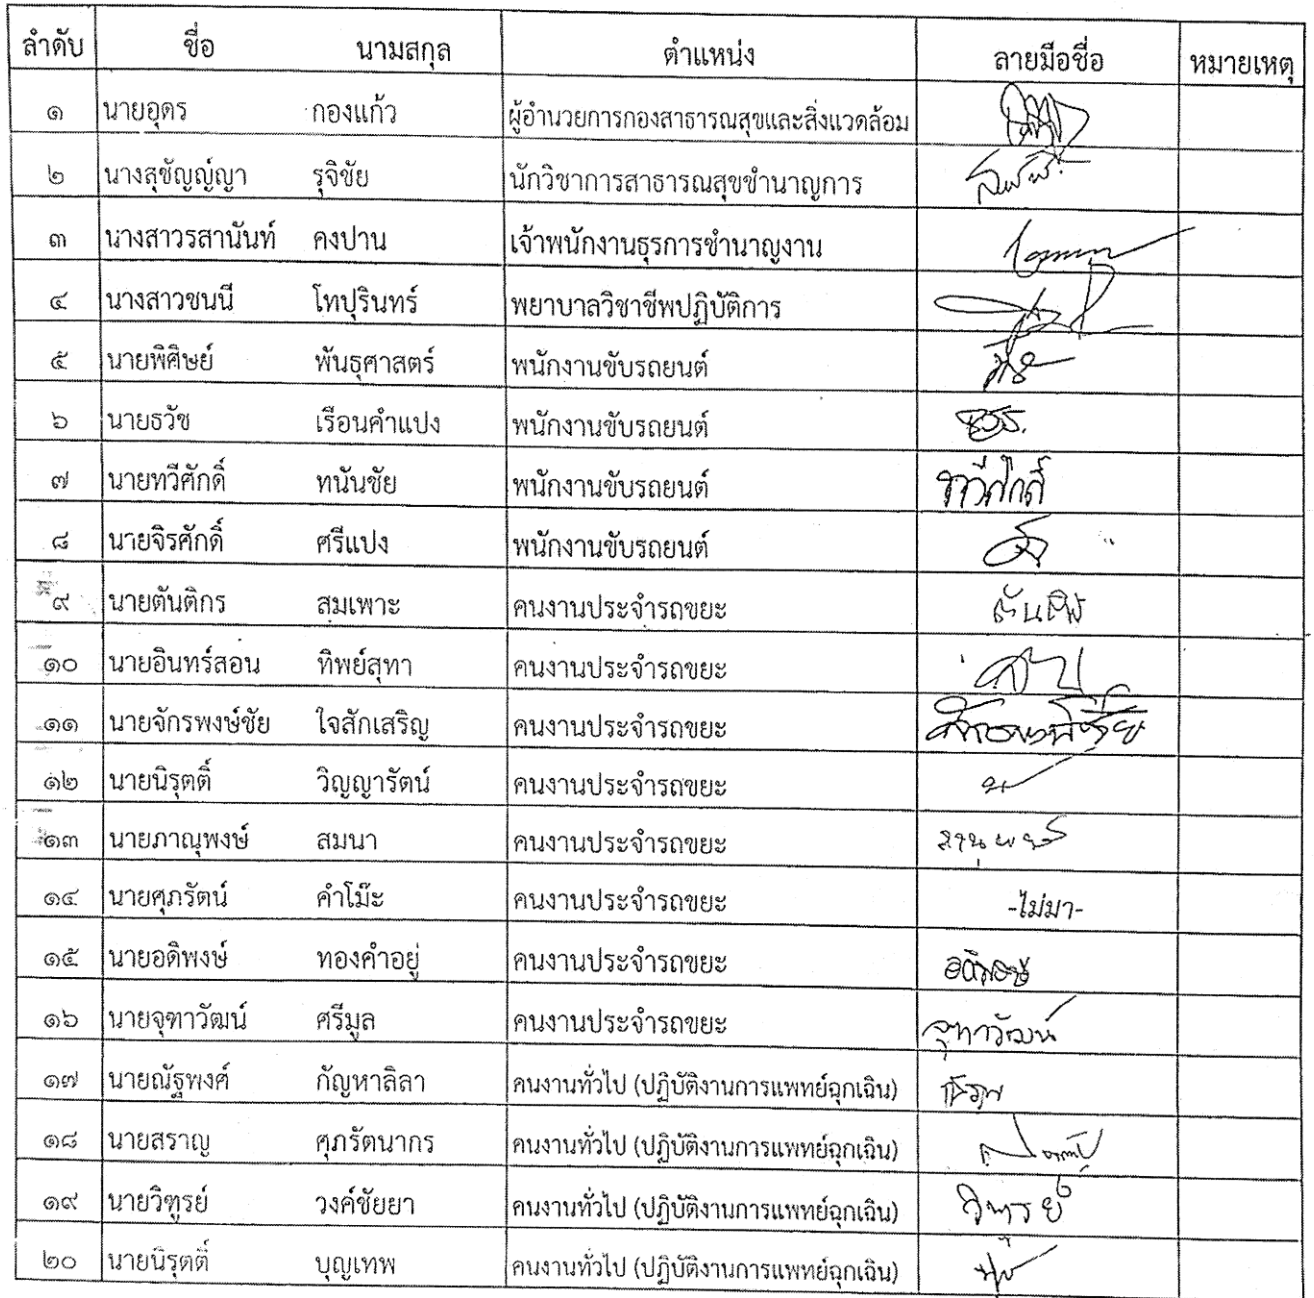 ลำดับ ชื่อ นามสกุล ตำแหน่ง ลายมือชื่อ หมายเหตุ
๑ นายอุดร กองแก้ว ผู้อำนวยการกองสาธารณสุขและสิ่งแวดล้อม
๒ นางสุชัญญ์ญา รุจิชัย นักวิชาการสาธารณสุขชำนาญการ
๓ นางสาวรสานันท์ คงปาน เจ้าพนักงานธุรการชำนาญงาน
๔ นางสาวชนนี โทปุรินทร์ พยาบาลวิชาชีพปฏิบัติการ
๕ นายพิศิษย์ พันธุศาสตร์ พนักงานขับรถยนต์
๖ นายธวัช เรือนคำแปง พนักงานขับรถยนต์
๗ นายทวีศักดิ์ ทนันชัย พนักงานขับรถยนต์ ทวีศักดิ์
๘ นายจิรศักดิ์ ศรีแปง พนักงานขับรถยนต์
๙ นายตันติกร สมเพาะ คนงานประจำรถขยะ
๑๐ นายอินทร์สอน ทิพย์สุทา คนงานประจำรถขยะ
๑๑ นายจักรพงษ์ชัย ใจสักเสริญ คนงานประจำรถขยะ
๑๒ นายนิรุตติ์ วิญญารัตน์ คนงานประจำรถขยะ
๑๓ นายภาณุพงษ์ สมนา คนงานประจำรถขยะ
๑๔ นายศุภรัตน์ คำโม๊ะ คนงานประจำรถขยะ -ไม่มา-
๑๕ นายอดิพงษ์ ทองคำอยู่ คนงานประจำรถขยะ
๑๖ นายจุฑาวัฒน์ ศรีมูล คนงานประจำรถขยะ จุฑาวัฒน์
๑๗ นายณัฐพงศ์ กัญหาลิลา คนงานทั่วไป (ปฏิบัติงานการแพทย์ฉุกเฉิน)
๑๘ นายสราญ ศุภรัตนากร คนงานทั่วไป (ปฏิบัติงานการแพทย์ฉุกเฉิน)
๑๙ นายวิฑูรย์ วงค์ชัยยา คนงานทั่วไป (ปฏิบัติงานการแพทย์ฉุกเฉิน) วิฑูรย์
๒๐ นายนิรุตติ์ บุญเทพ คนงานทั่วไป (ปฏิบัติงานการแพทย์ฉุกเฉิน)